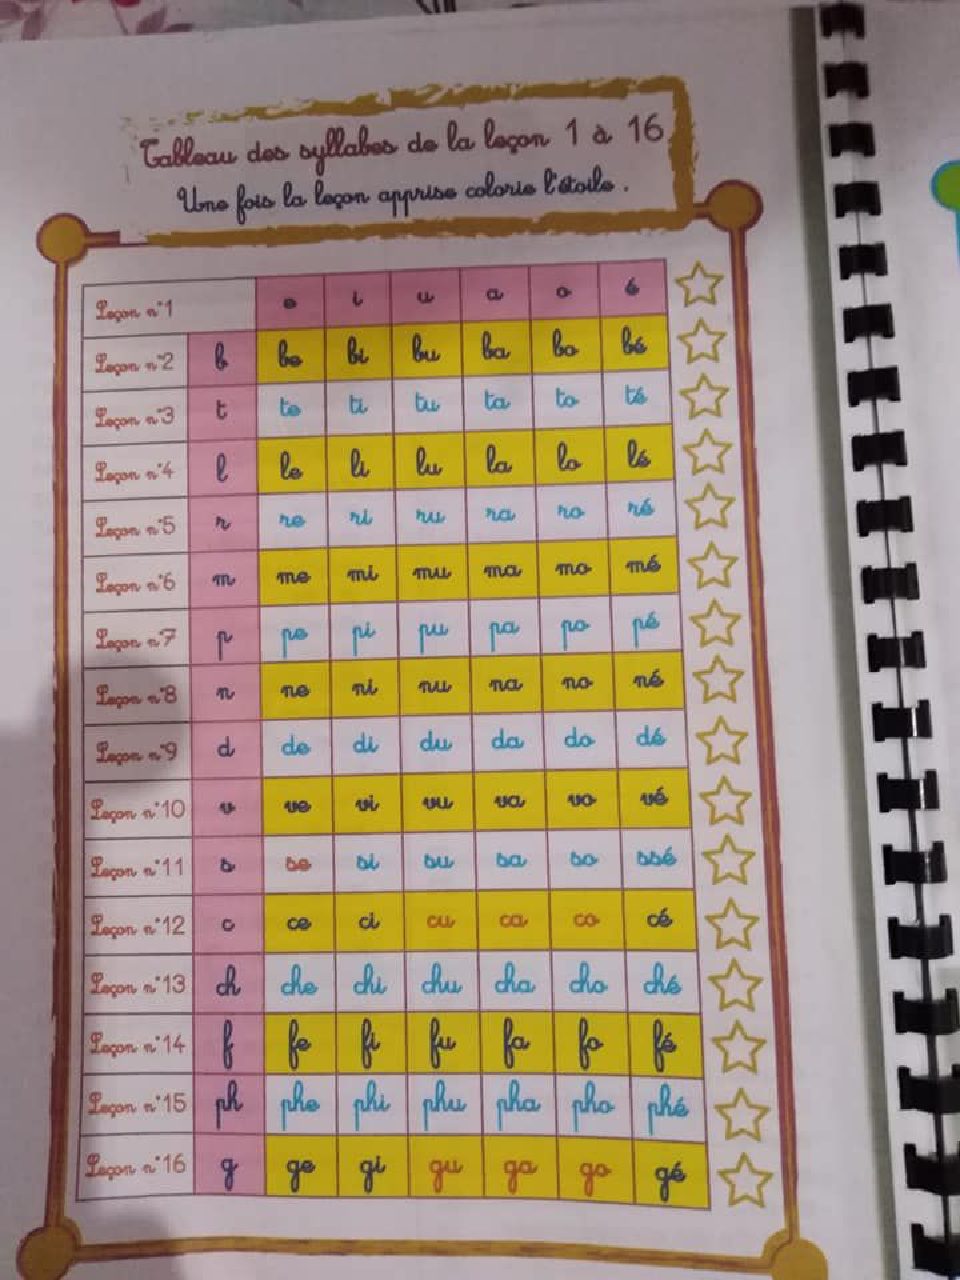 Tableau des syllabes de la leçon 1 à 16
Une fois la leçon apprise colorie l'étoile .
Leçon n°1 e i u a o é
Leçon n°2 b be bi bu ba bo bé
Leçon n°3 t te ti tu ta to té
Leçon n°4 l le li lu la lo lé
Leçon n°5 r re ri ru ra ro ré
Leçon n°6 m me mi mu ma mo mé
Leçon n°7 p pe pi pu pa po pé
Leçon n°8 n ne ni nu na no né
Leçon n°9 d de di du da do dé
Leçon n°10 v ve vi vu va vo vé
Leçon n°11 s se si su sa so ssé
Leçon n°12 c ce ci cu ca co cé
Leçon n°13 ch che chi chu cha cho ché
Leçon n°14 f fe fi fu fa fo fé
Leçon n°15 ph phe phi phu pha pho phé
Leçon n°16 g ge gi gu ga go gé